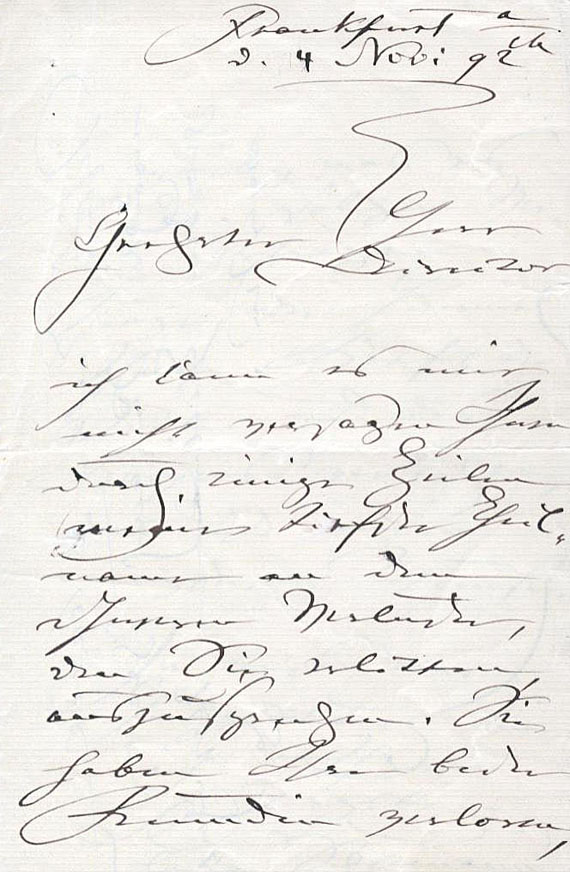 Frankfurt a/M
d. 4 Nov. 92
Geehrter Herr
Director
ich kann es mir
nicht versagen Ihnen
durch einige Zeilen
meine tiefste Theil-
name an dem
Verluste,
den Sie erlitten,
auszusprechen. Sie
haben Ihre beste
Freundin verloren,